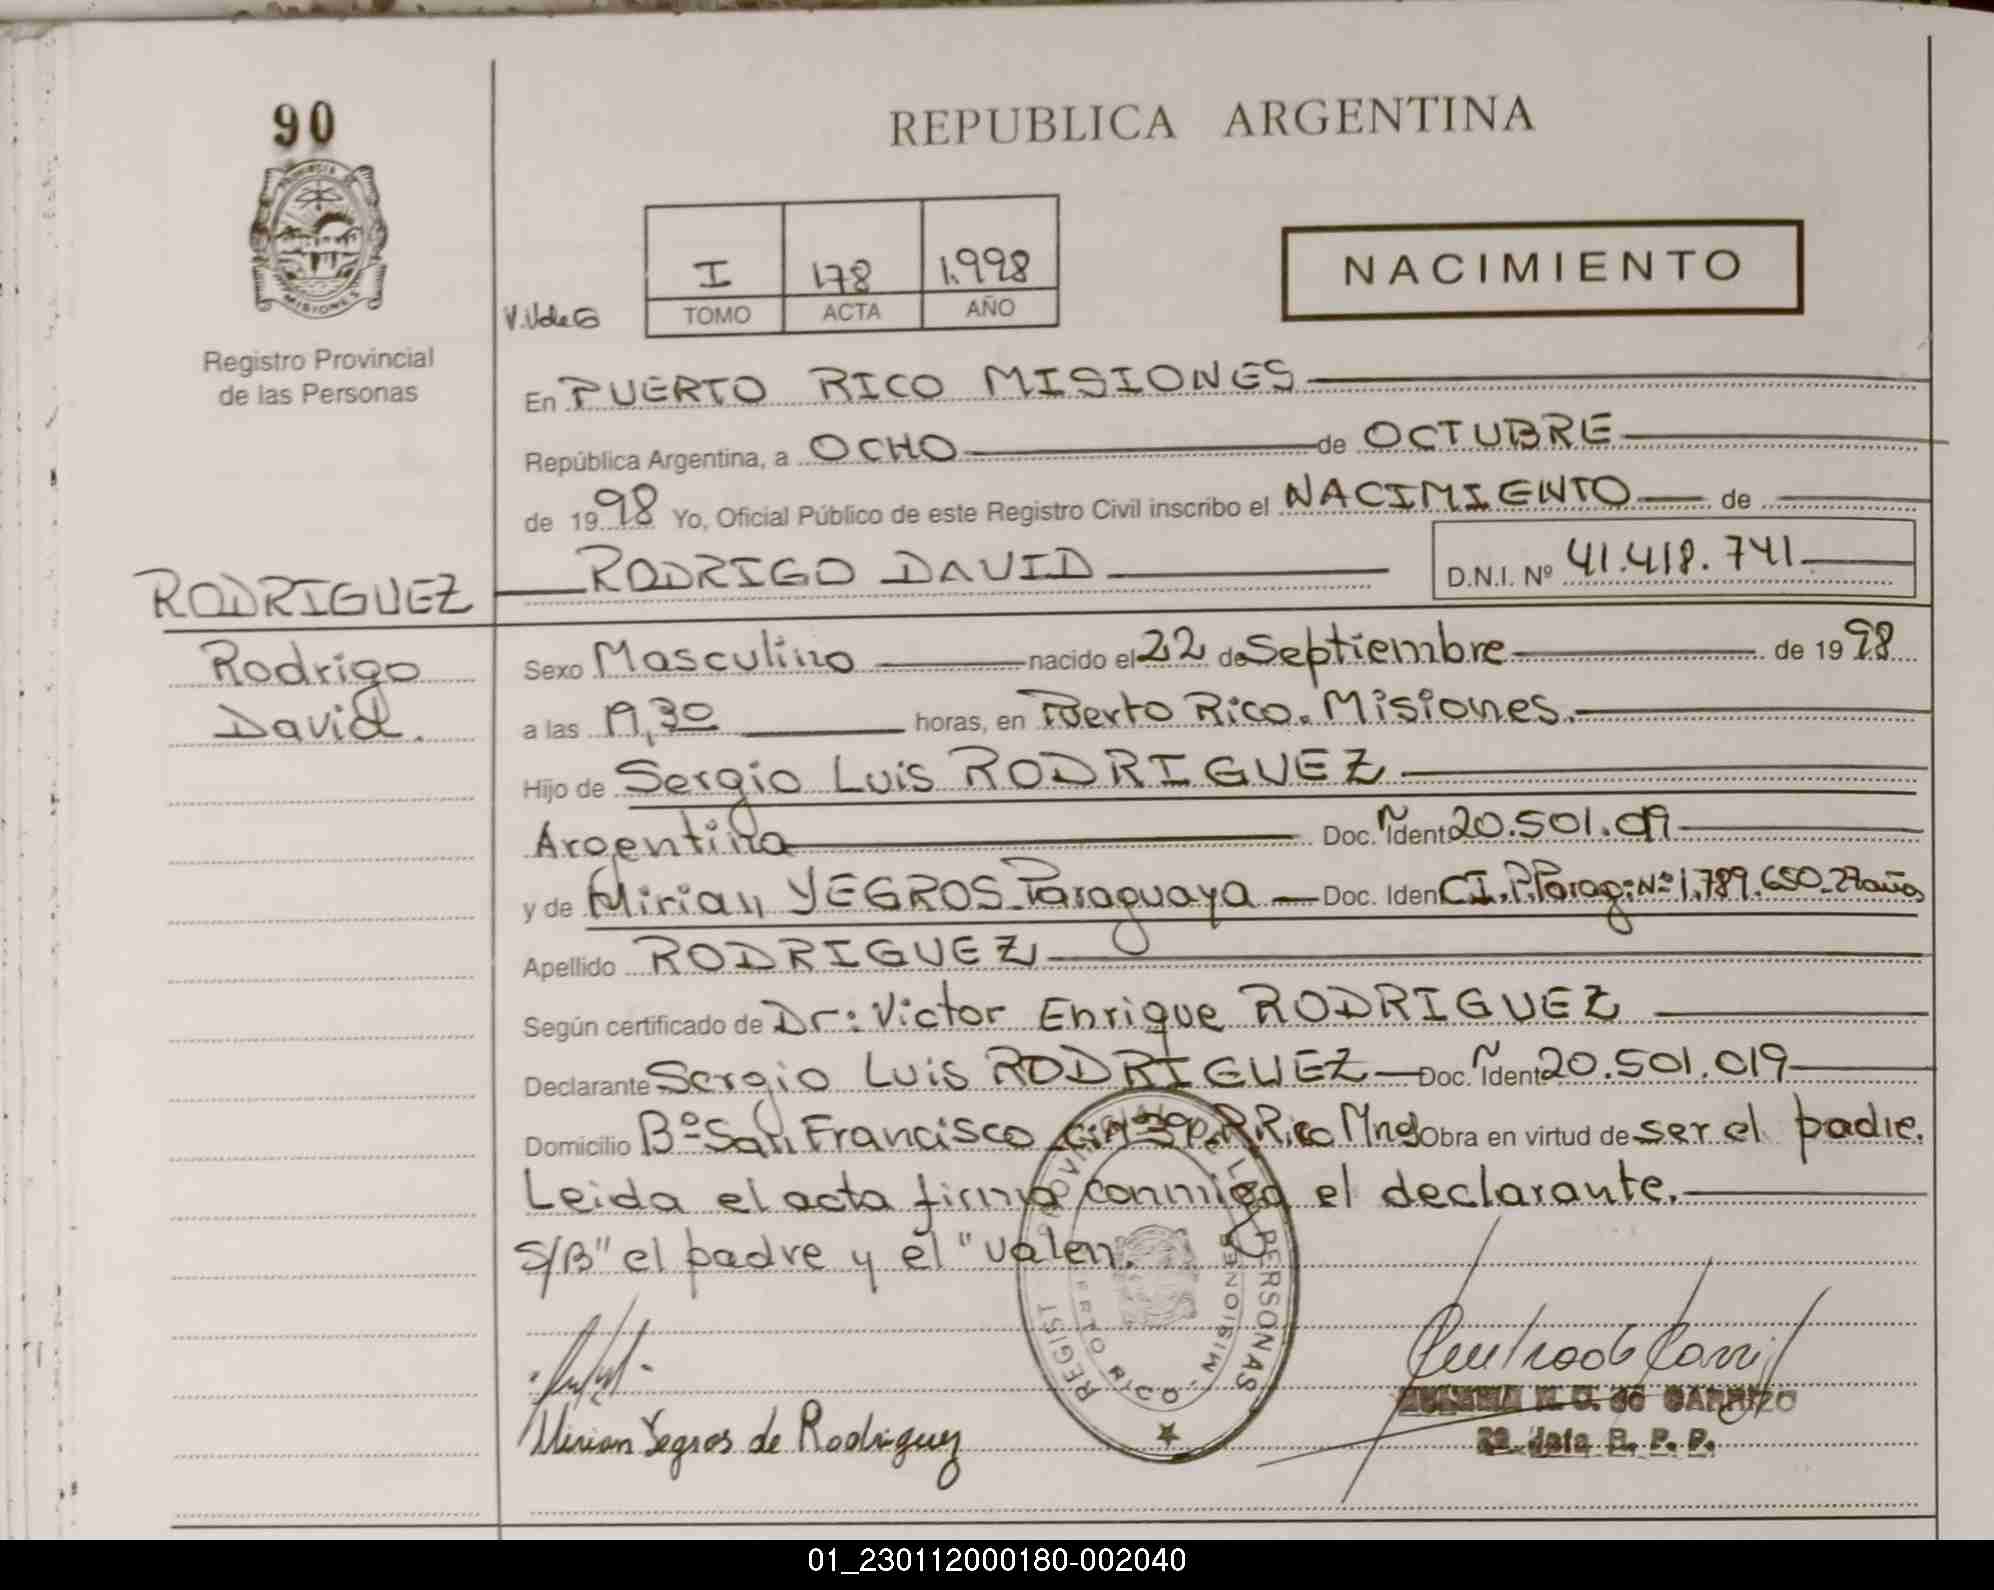 90
REPUBLICA ARGENTINA
PROVINCIA DE
MISIONES
I 178 1.998
TOMO ACTA AÑO
NACIMIENTO
Registro Provincial
de las Personas
En PUERTO RICO MISIONES
República Argentina, a OCHO de OCTUBRE
de 1998 Yo, Oficial Público de este Registro Civil inscribo el NACIMIENTO de
RODRIGUEZ RODRIGO DAVID D.N.I. Nº 41.418.741
Rodrigo
David.
Sexo Masculino nacido el 22 de Septiembre de 1998
a las 19,30 horas, en Puerto Rico. Misiones.
Hijo de Sergio Luis RODRIGUEZ
Argentina Doc. Ident 20.501.019
y de Mirian YEGROS Paraguaya Doc. Iden C.I.P.Parag: Nº 1.789.650 27 años
Apellido RODRIGUEZ
Según certificado de Dr: Victor Enrique RODRIGUEZ
Declarante Sergio Luis RODRIGUEZ Doc. Ident 20.501.019
Domicilio Bº San Francisco P.Rico Mnes Obra en virtud de ser el padre.
Leida el acta firma conmigo el declarante.
S/B" el padre y el "valen.
REGIST PROVINCIAL DE LAS PERSONAS
PUERTO RICO - MISIONES
Mirian Yegros de Rodriguez
de CARRIZO
Jefa R. P. P.
01_230112000180-002040